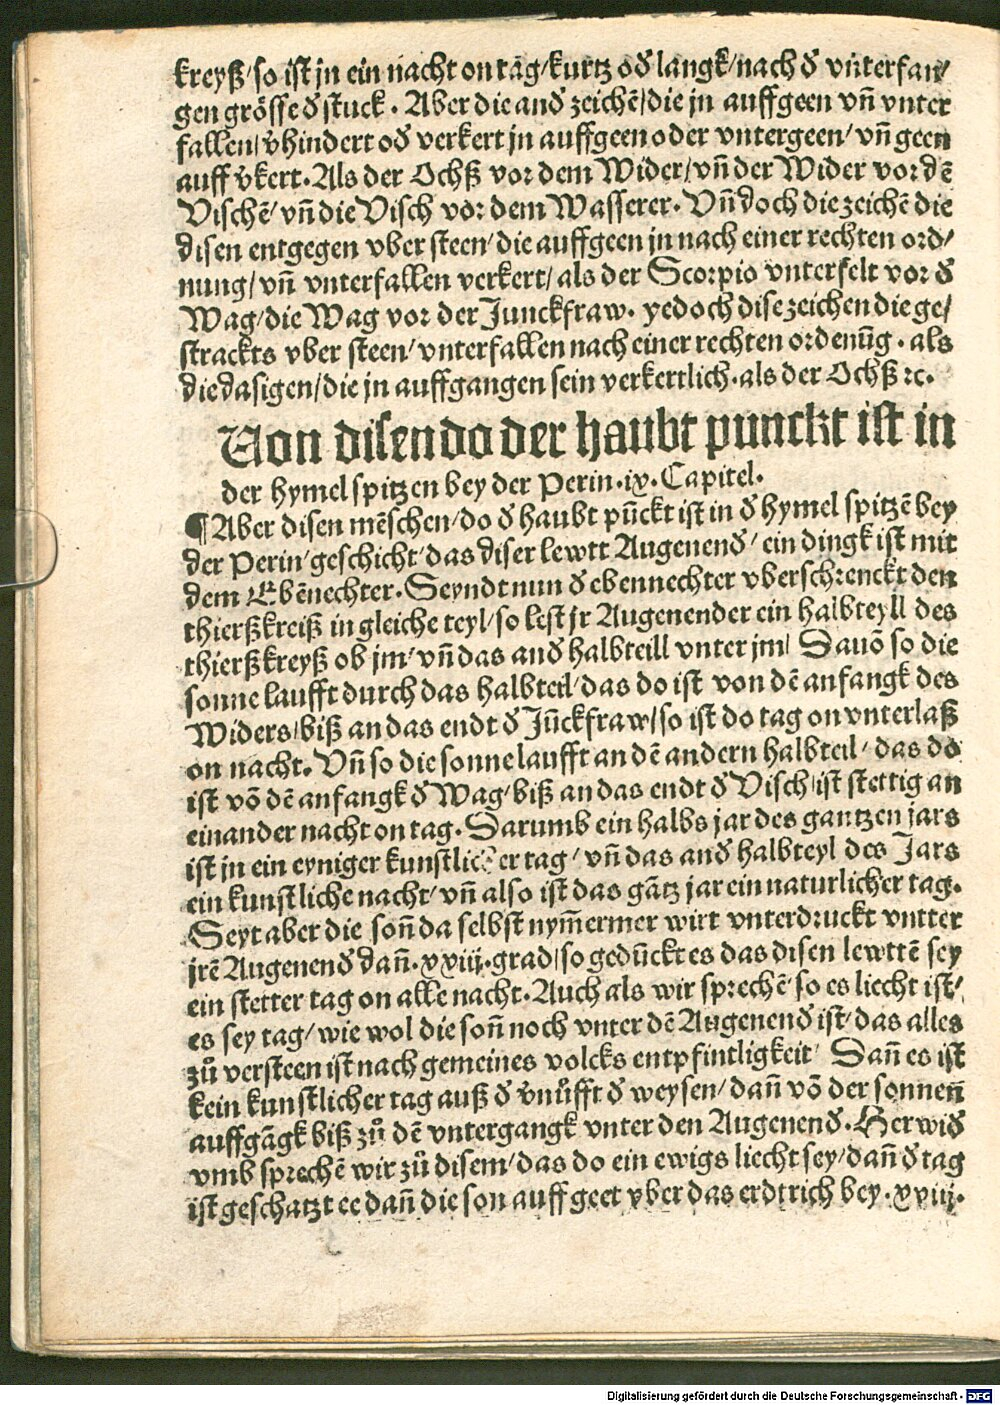 kreyß/so ist jn ein nacht on tag/kurtz oď langk/nach ď vnterfan/
gen grösse ď stuck. Aber die anď zeichē/die jn auffgeen vñ vnter
fallen/v̓hindert oď verkert jn auffgeen oder vntergeen/vñ geen
auff v̓kert. Als der Ochß vor dem Wider/vñ der Wider vor dē
Vischē/vñ die Visch vor dem Wasserer. Vñ doch die zeichē die
disen entgegen vber steen/die auffgeen jn nach einer rechten ord/
nung/vñ vnterfallen verkert/als der Scorpio vnterfelt vor ď
Wag/die Wag vor der Junckfraw. yedoch dise zeichen die ge/
strackts vber steen/vnterfallen nach einer rechten ordenūg. als
die dasigen/die jn auffgangen sein verkertlich. als der Ochß ꝛc.
Von disen do der haubt punckt ist in
der hymel spitzen bey der Perin. ix. Capitel.
¶ Aber disen mēschen/do ď haubt pūckt ist in ď hymel spitzē bey
der Perin/geschicht/das diser lewtt Augenenď/ein dingk ist mit
dem Ebēnechter. Seyndt nun ď ebennechter vberschrenckt den
thierßkreiß in gleiche teyl/so lest jr Augenender ein halbteyll des
thierßkreyß ob jm/vñ das anď halbteill vnter jm/ Dauō so die
sonne laufft durch das halbteil/das do ist von dē anfangk des
Widers/biß an das endt ď Jūckfraw/so ist do tag on vnterlaß
on nacht. Vñ so die sonne laufft an dē andern halbteil/das do
ist vō dē anfangk ď Wag/biß an das endt ď Visch/ist stettig an
einander nacht on tag. Darumb ein halbs jar des gantzen jars
ist jn ein eyniger kunstlicher tag/vñ das anď halbteyl des Jars
ein kunstliche nacht/vñ also ist das gātz jar ein naturlicher tag.
Seyt aber die soñ da selbst nym̄ermer wirt vnterdruckt vntter
jrē Augenenď dañ. xxiij. grad/so gedūckt es das disen lewttē sey
ein stetter tag on alle nacht. Auch als wir sprechē/so es liecht ist/
es sey tag/wie wol die soñ noch vnter dē Augenenď ist/das alles
zů versteen ist nach gemeines volcks entpfintligkeit/ Dañ es ist
kein kunstlicher tag auß ď v̓nůfft ď weysen/dañ vō der sonneñ
auffgāgk biß zů dē vntergangk vnter den Augenenď. Herwiď
vmb sprechē wir zů disem/das do ein ewigs liecht sey/dañ ď tag
ist geschatzt ee dañ die son auff geet vber das erdtrich bey. xviij.
Digitalisierung gefördert durch die Deutsche Forschungsgemeinschaft - DFG